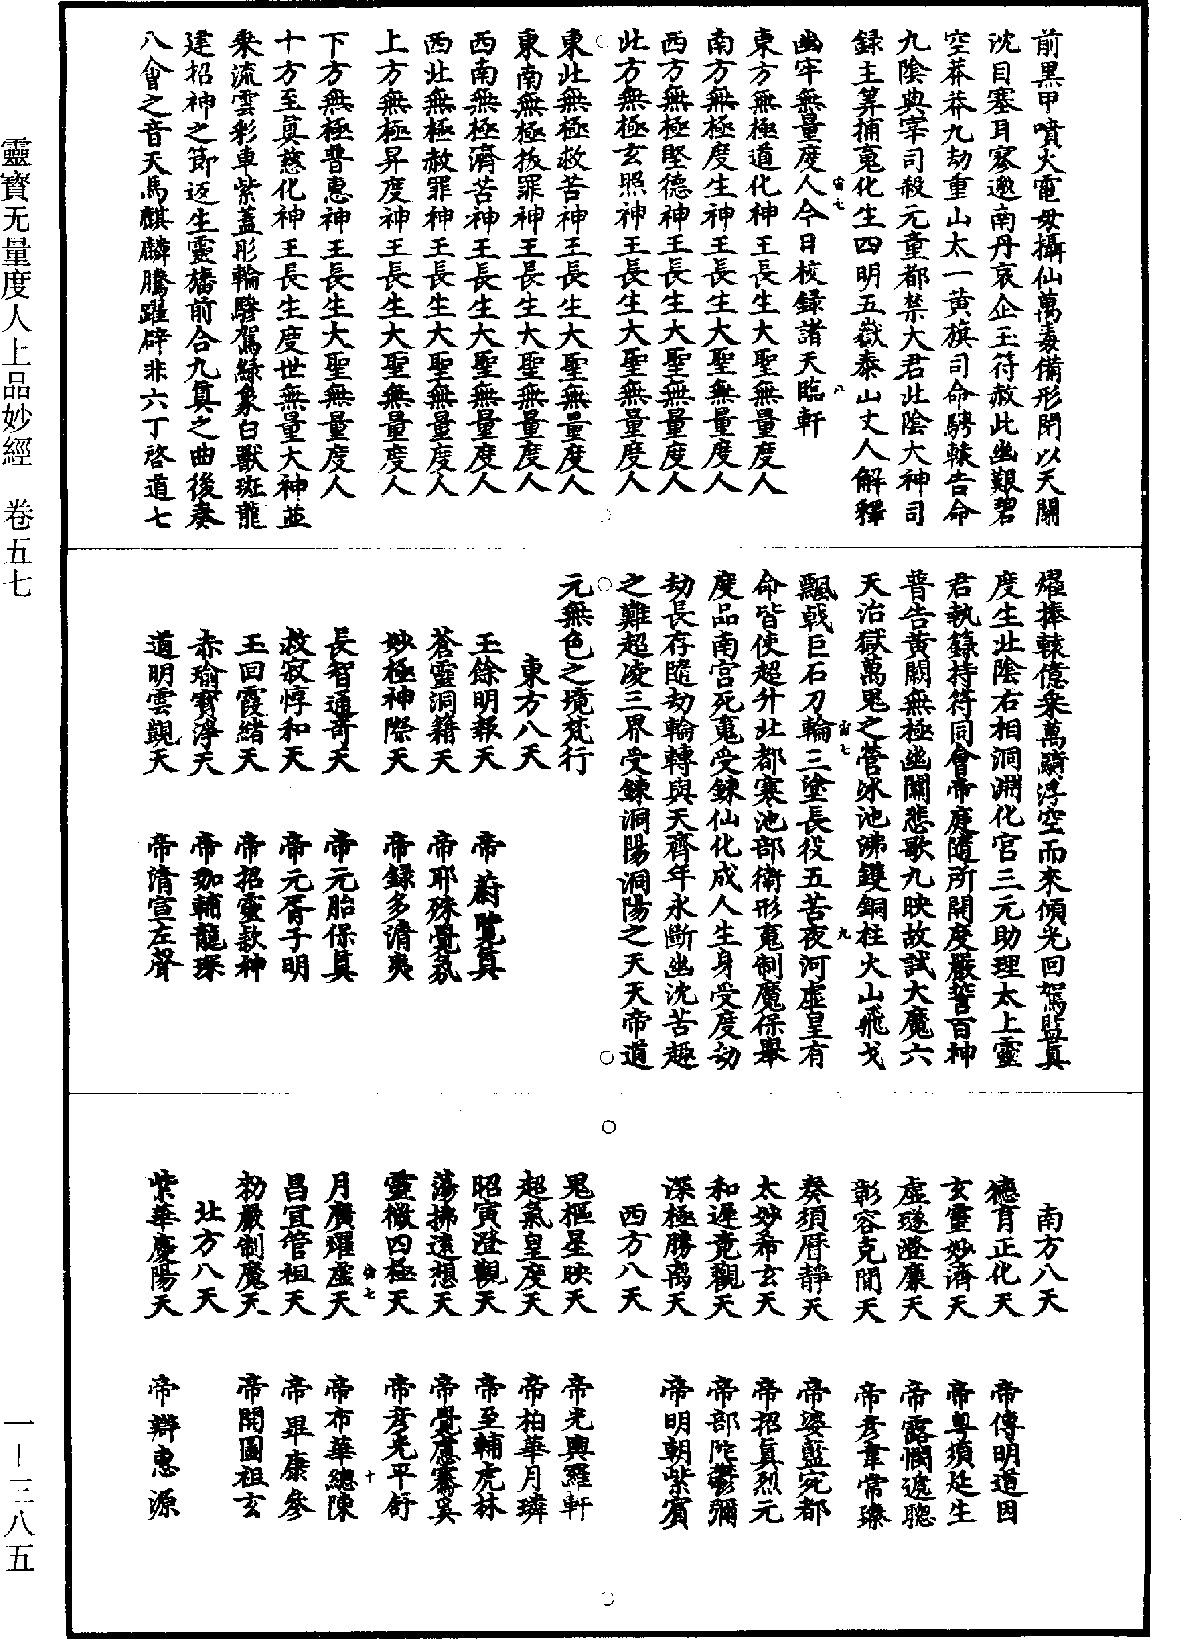 靈寶无量度人上品妙經　卷五七
一—三八五
前黑甲噴火電毋攝仙萬毒備形閉以天關
沈目塞耳寥邈南丹哀企玉符赦此幽艱碧
空莽莽九劫重山太一黃旗司命騁轅告命
九陰典宰司殺元童都禁大君北陰大神司
録主筭捕䰟化生四明五嶽泰山丈人解釋
幽牢無量度人今日校録諸天臨軒
東方無極道化神王長生大聖無量度人
南方無極度生神王長生大聖無量度人
西方無極堅德神王長生大聖無量度人
北方無極玄照神王長生大聖無量度人
東北無極救苦神王長生大聖無量度人
東南無極拔罪神王長生大聖無量度人
西南無極濟苦神王長生大聖無量度人
西北無極赦罪神王長生大聖無量度人
上方無極昇度神王長生大聖無量度人
下方無極普惠神王長生大聖無量度人
十方至真慈化神王長生度世無量大神並
乘流雲彩車紫蓋彤輪驂駕緑象白獸斑龍
建招神之節迓生靈旛前合九真之曲後奏
八會之音天馬麒麟騰躍辟非六丁啓道七
燿捧轅億乘萬騎浮空而來傾光回駕監真
度生北陰右相洞淵化官三元助理太上靈
君執籙持符同會帝庭隨所開度嚴誓百神
普告黃闕無極幽關悲歌九映故試大魔六
天治獄萬鬼之營冰池沸鑊銅柱火山飛戈
飄戟巨石刀輪三塗長役五苦夜河虛皇有
命皆使超升北都寒池部衛形䰟制魔保舉
度品南宮死䰟受鍊仙化成人生身受度劫
劫長存隨劫輪轉與天齊年永斷幽沈苦趣
之難超凌三界受鍊洞陽洞陽之天天帝道
元無色之境梵行
東方八天
玉餘明報天　帝蔚曉真
蒼靈洞籍天　帝耶殊覺氛
妙極神際天　帝録多清夷
長智通奇天　帝元胎保真
救寂惇和天　帝元胥子明
玉回霞緒天　帝招靈款神
赤瑜寳淨天　帝珈輔龍琛
道明雲觀天　帝清宣左聲
南方八天
德育正化天　帝傳明道因
玄靈妙濟天　帝粤須延生
虛䆳澄廉天　帝露憫遮聦
彰容克閒天　帝彥韋常瓈
奏須曆靜天　帝婆藍宛都
太妙希玄天　帝招真烈元
和遲竟觀天　帝部陀鬱彌
深極勝离天　帝明朝紫賓
西方八天
鬼樞星映天　帝光輿羅軒
超氣皇度天　帝柏華月璘
昭寅澄觀天　帝至輔虎林
蕩拂遠想天　帝覺應騫奚
靈微四極天　帝彥光平舒
月廣曜虛天　帝布華總陳
昌宜管祖天　帝畢康參
㓡嚴制魔天　帝開圖祖玄
北方八天
紫華慶陽天　帝辯惠源